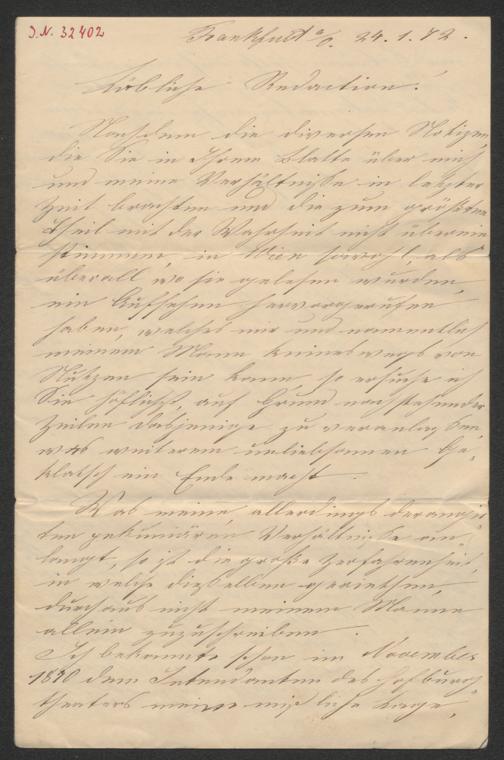 J.N. 32402
Frankfurt a/O. 24.1.72.
Löbliche Redaction!
Nachdem die diversen Notizen,
die Sie in Ihrem Blatte über mich
und meine Verhältniße in letzter
Zeit brachten und die zum größten
Theil mit der Wahrheit nicht überein-
stimmen, in Wien sowohl, als
überall, wo sie gelesen wurden,
ein Aufsehen hervorgerufen
haben, welches mir und namentlich
meinem Mann keineswegs von
Nutzen sein kann, so ersuche ich
Sie höflichst, auf Grund nachstehender
Zeilen dasjenige zu veranlaßen,
was weiterem unliebsamen Ge-
klatsch ein Ende macht.
Was meine, allerdings derangir-
ten pekuniären Verhältniße an-
langt, so ist die große Zerfahrenheit,
in welche dieselben geriethen,
durchaus nicht meinem Manne
allein zuzuschreiben.
Ich bekannte schon im November
1870 dem Intendanten des Hofburg-
theaters meine mißliche Lage,